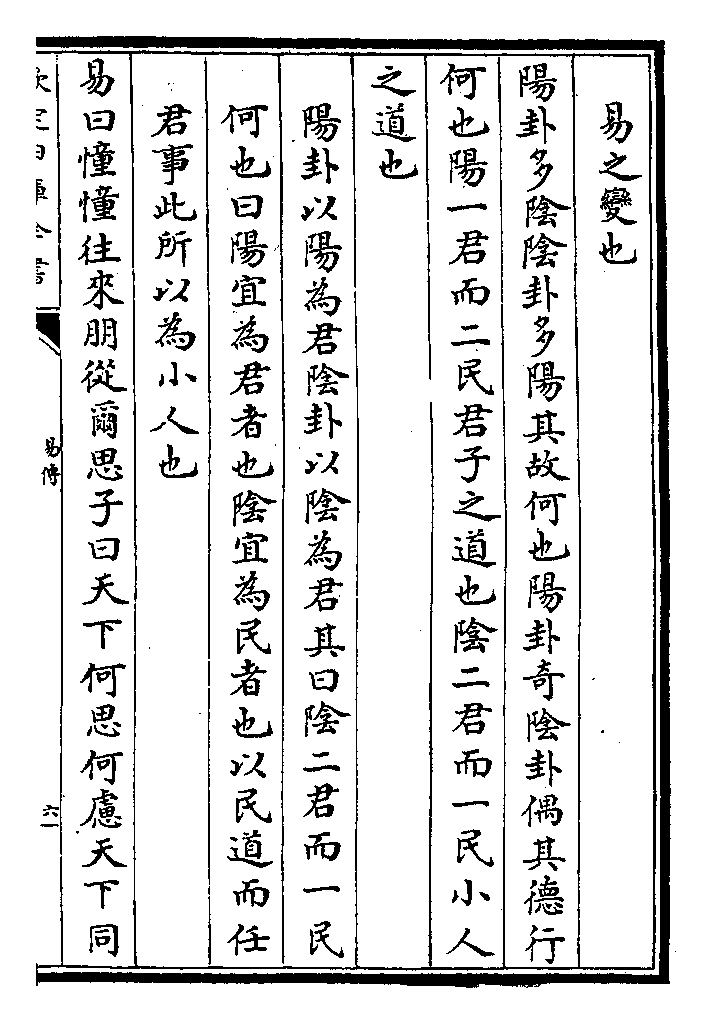 易之變也
陽卦多陰陰卦多陽其故何也陽卦奇陰卦偶其德行
何也陽一君而二民君子之道也陰二君而一民小人
之道也
陽卦以陽為君陰卦以陰為君其曰陰二君而一民
何也曰陽宜為君者也陰宜為民者也以民道而任
君事此所以為小人也
易曰憧憧往來朋從爾思子曰天下何思何慮天下同
欽定四庫全書
易傳
六一